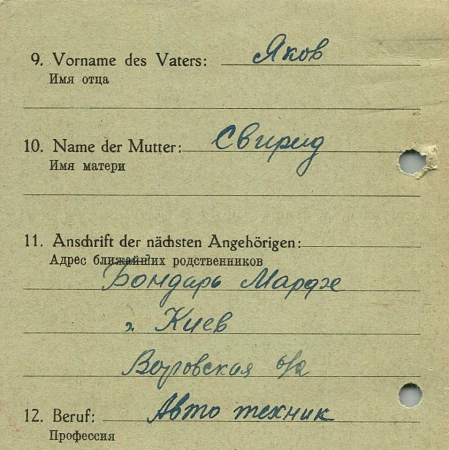 9. Vorname des Vaters: Яков
Имя отца
10. Name der Mutter: Свирид
Имя матери
11. Anschrift der nächsten Angehörigen:
Адрес ближайших родственников
Бондарь Марфе
г. Киев
12. Beruf: Авто техник
Профессия